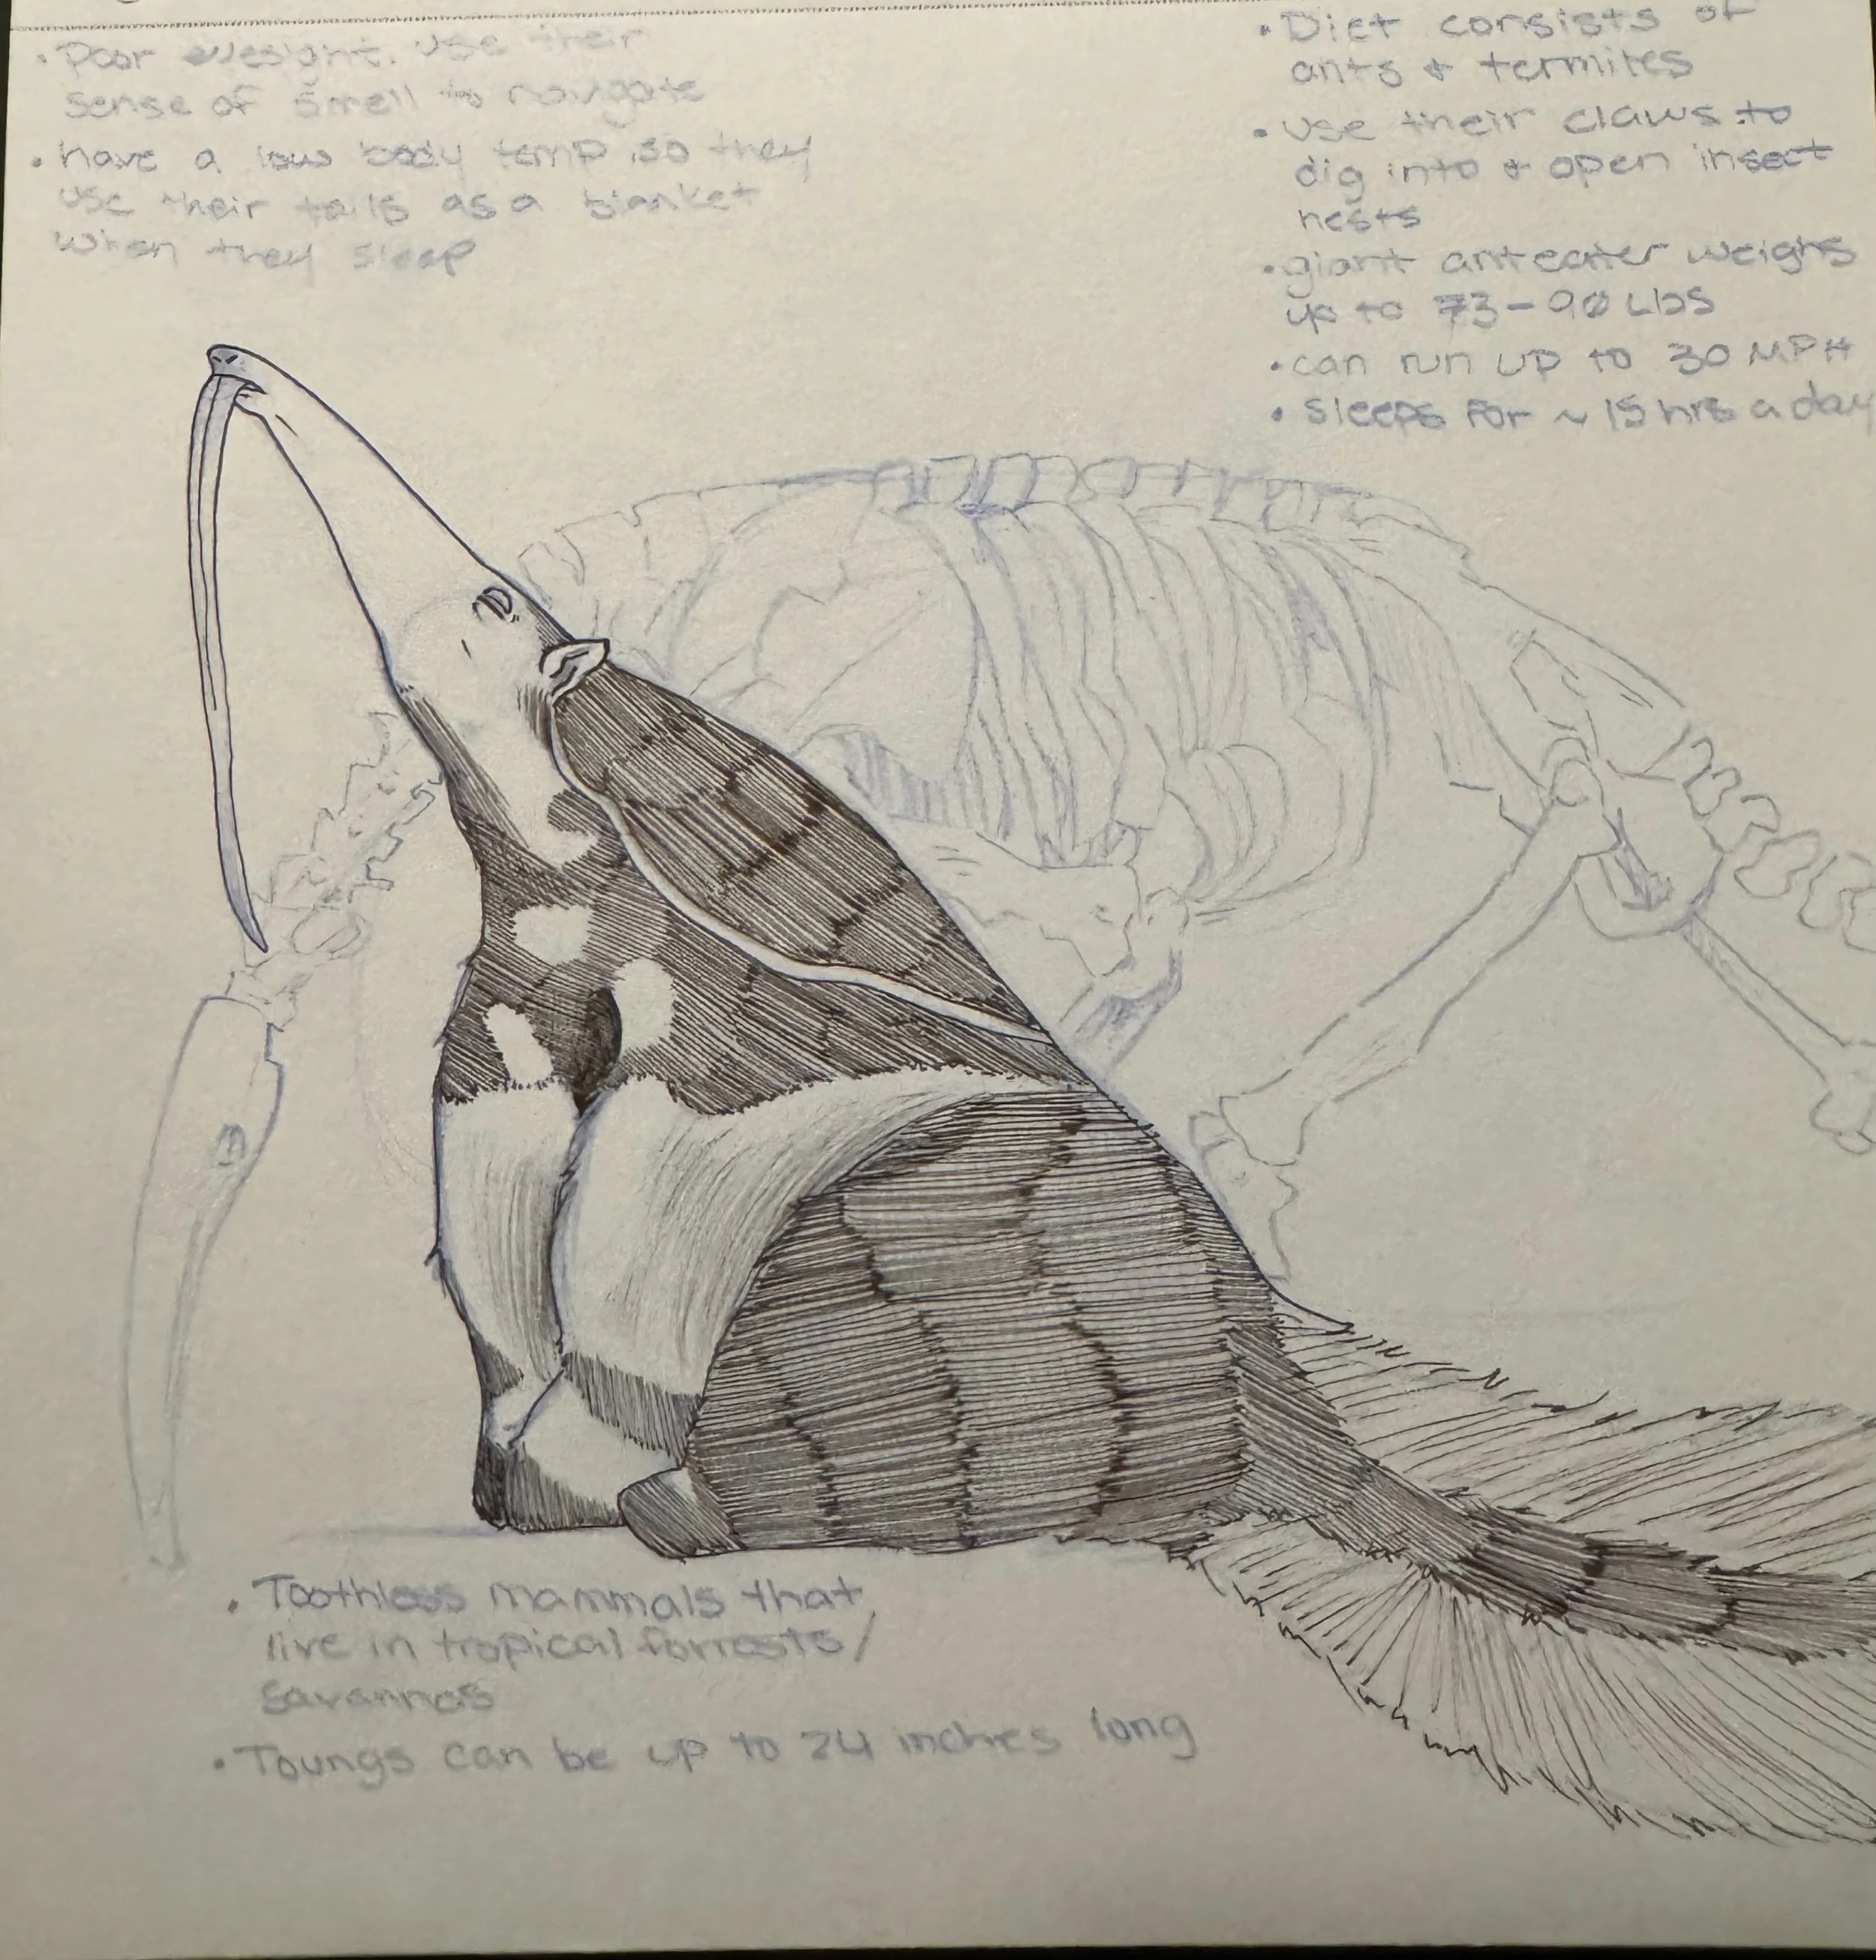 • Poor eyesight. Use their
sense of smell to navigate
• have a low body temp so they
use their tails as a blanket
when they sleep
• Diet consists of
ants & termites
• Use their claws to
dig into & open insect
nests
• giant anteater weighs
up to 73-90 Lbs
• can run up to 30 MPH
• sleeps for ~ 15 hrs a day
• Toothless mammals that
live in tropical forrests/
Savannas
• Toungs can be up to 24 inches long